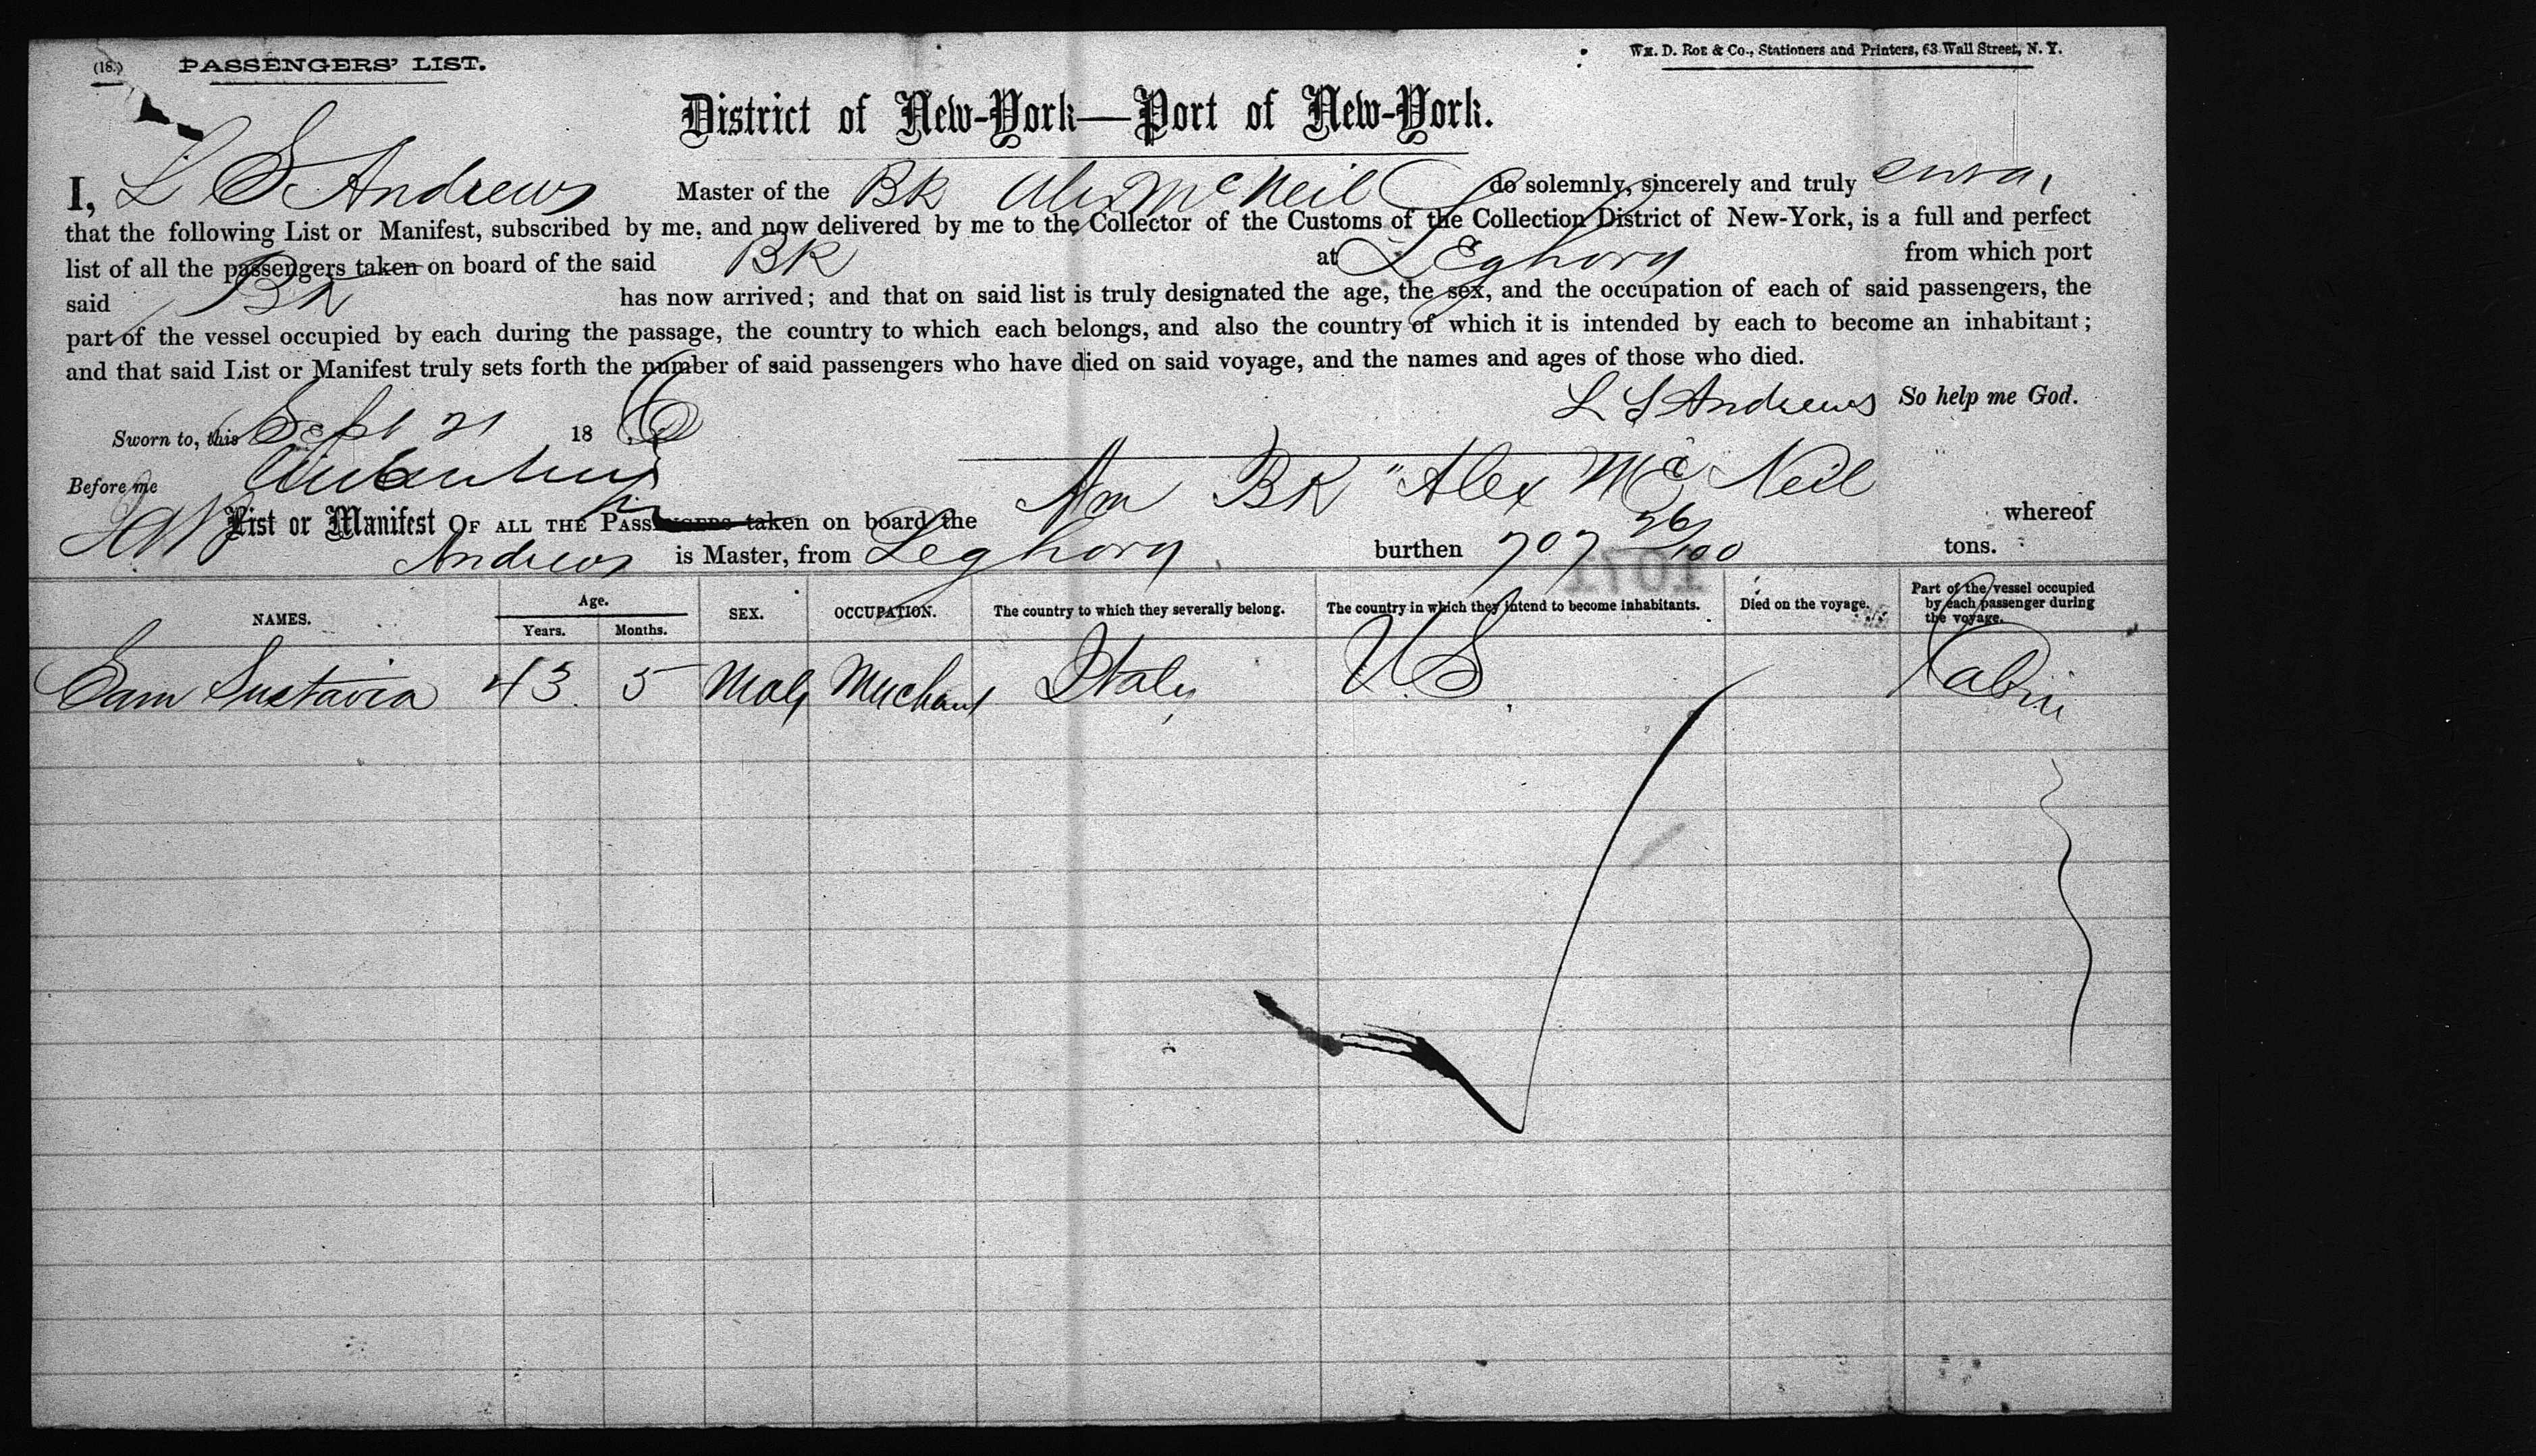 (18.) PASSENGERS' LIST.
WM. D. ROE & CO., Stationers and Printers, 63 Wall Street, N. Y.
District of New-York—Port of New-York.
I, L S Andrews Master of the Bk Alex McNeil do solemnly, sincerely and truly swear
that the following List or Manifest, subscribed by me, and now delivered by me to the Collector of the Customs of the Collection District of New-York, is a full and perfect
list of all the passengers taken on board of the said Bk at Leghorn from which port
said Bk has now arrived; and that on said list is truly designated the age, the sex, and the occupation of each of said passengers, the
part of the vessel occupied by each during the passage, the country to which each belongs, and also the country of which it is intended by each to become an inhabitant;
and that said List or Manifest truly sets forth the number of said passengers who have died on said voyage, and the names and ages of those who died.
L S Andrews So help me God.
Sworn to, this Sept 21 18
Before me
List or Manifest OF ALL THE PASSENGERS taken on board the Am Bk "Alex McNeil whereof
Andrews is Master, from Leghorn burthen 707 26/100 tons.
1701
NAMES. Age. Years. Months. SEX. OCCUPATION. The country to which they severally belong. The country in which they intend to become inhabitants. Died on the voyage. Part of the vessel occupied by each passenger during the voyage.
Sam 43 5 Male Merchant Italy U.S Cabin